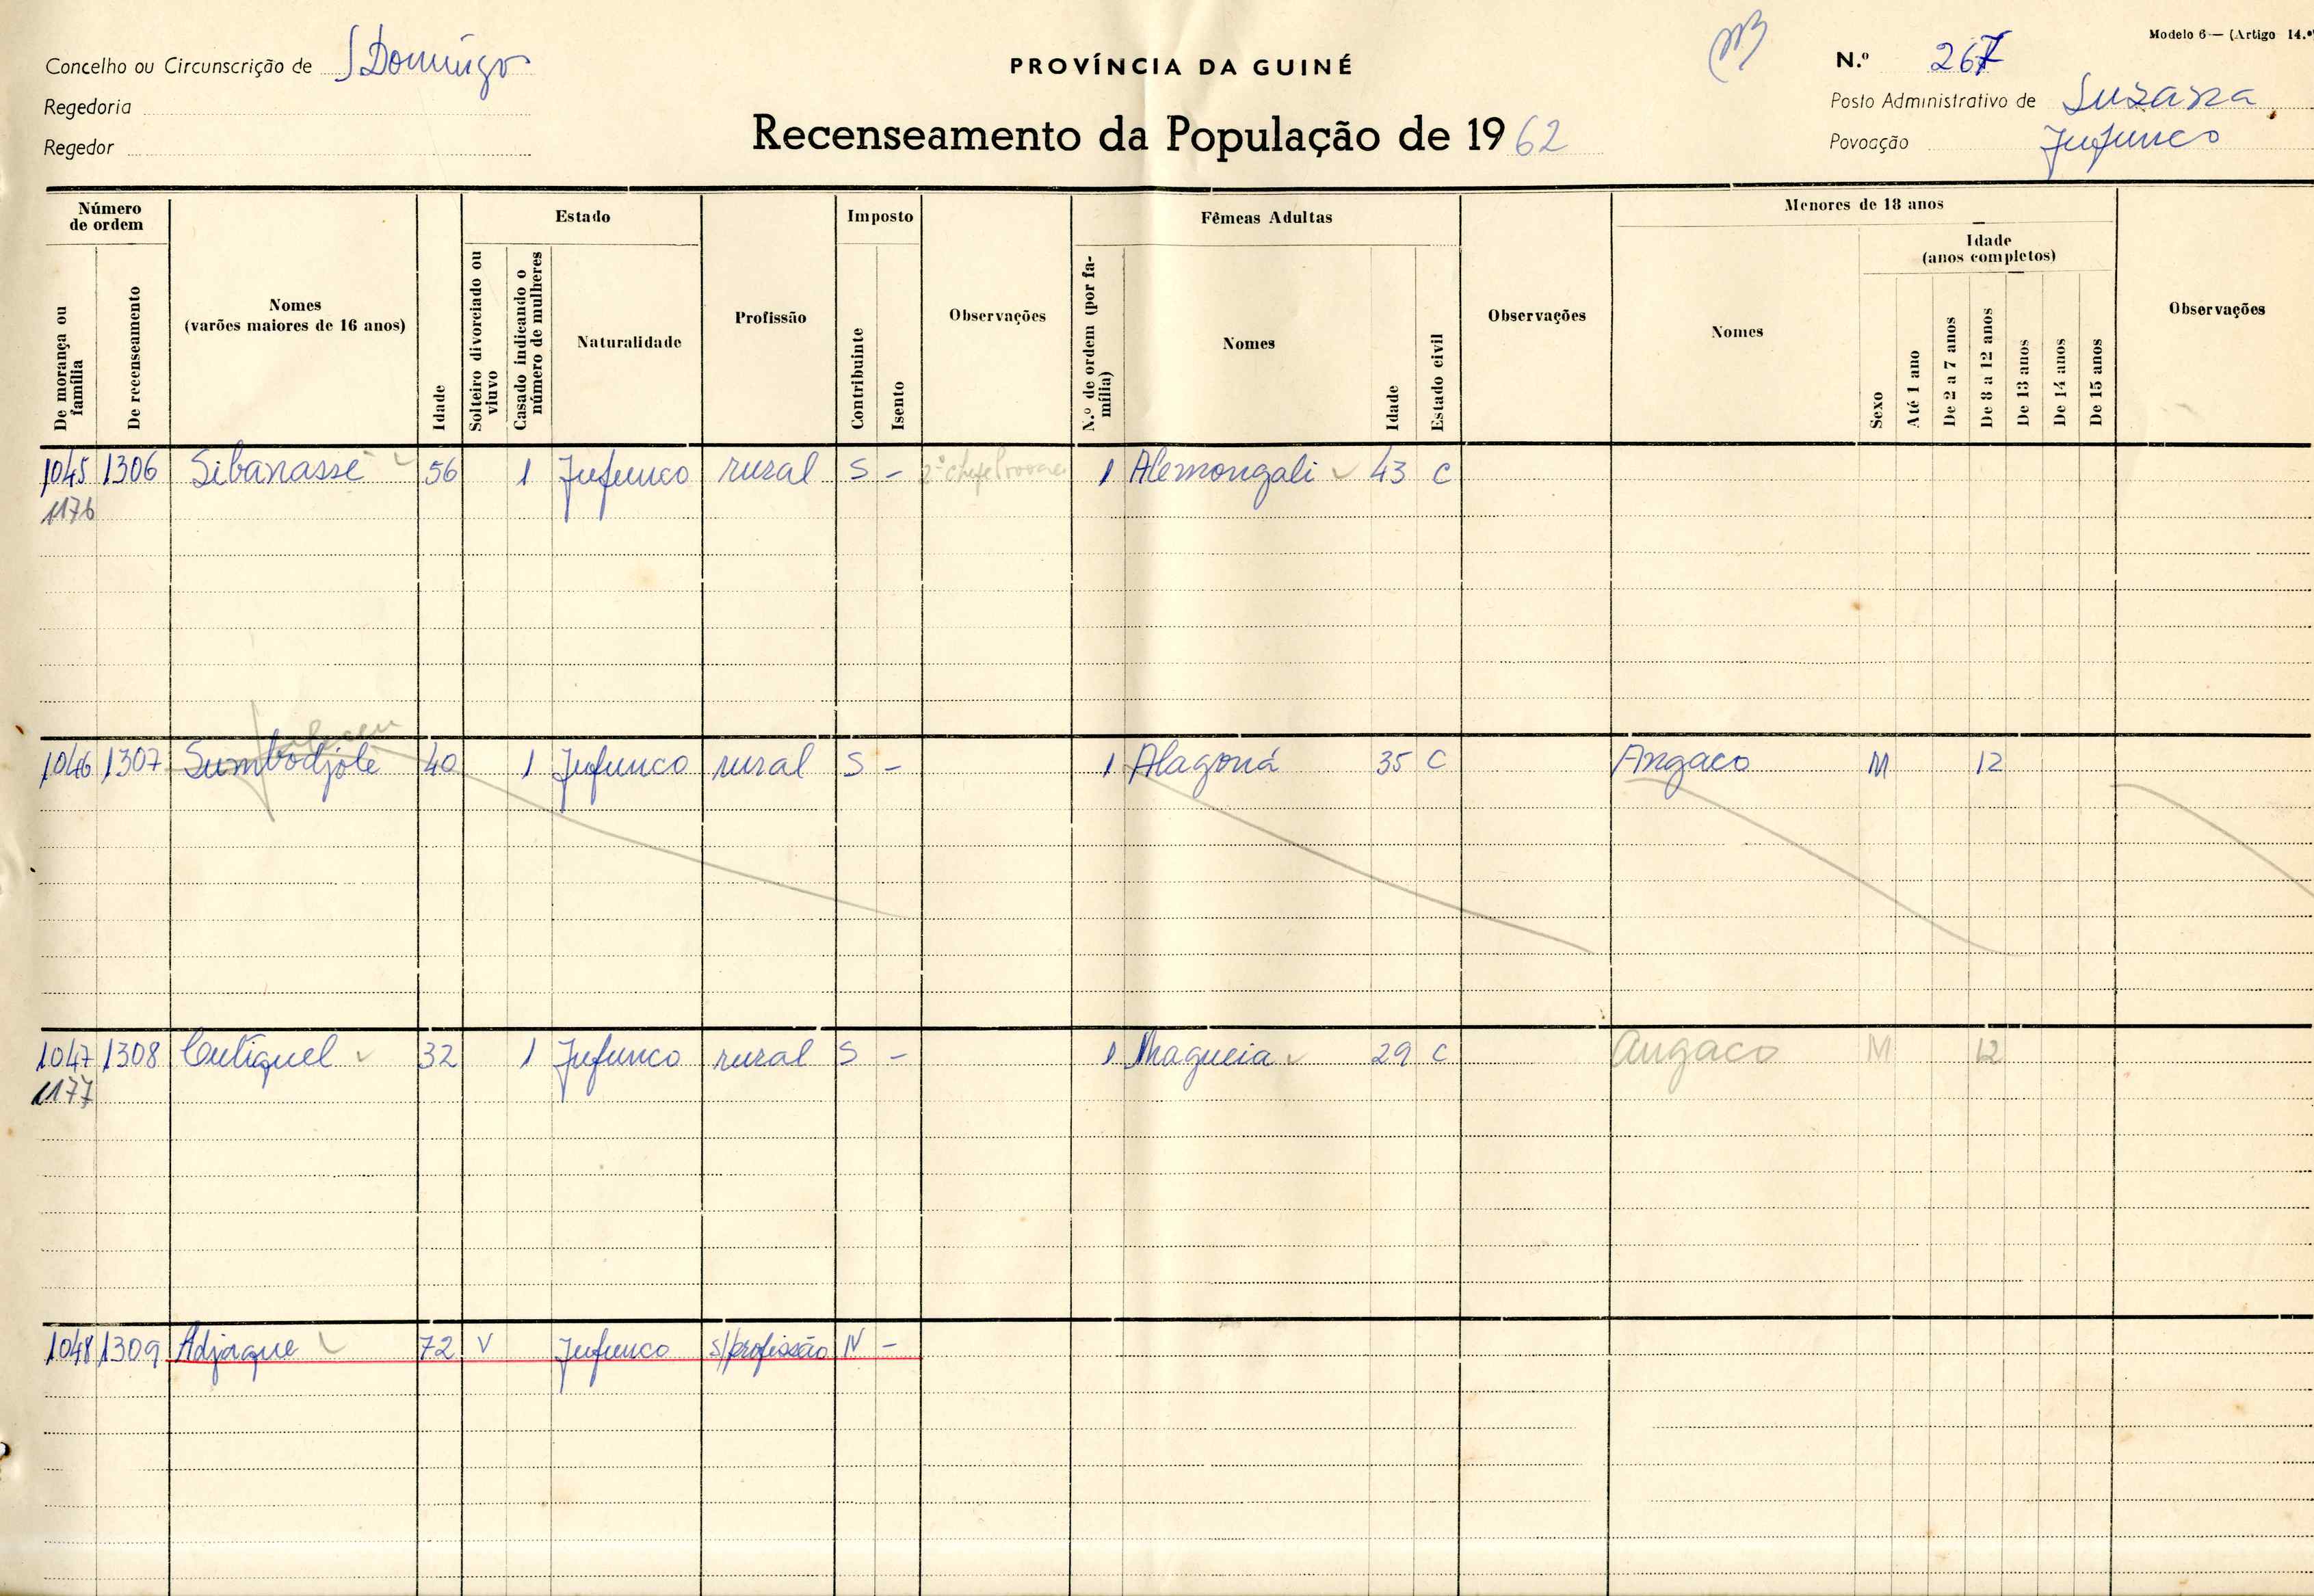 Modelo 6 — (Artigo 14.º
Concelho ou Circunscrição de S Domingo
PROVÍNCIA DA GUINÉ
N.º 267
Regedoria
Posto Administrativo de Suzana
Regedor
Recenseamento da População de 1962
Povoação Jufunco
Número de ordem
Estado
Imposto
Fêmeas Adultas
Menores de 18 anos
Idade (anos completos)
De morança ou família
De recenseamento
Nomes (varões maiores de 16 anos)
Idade
Solteiro divorciado ou viuvo
Casado indicando o número de mulheres
Naturalidade
Profissão
Contribuinte
Isento
Observações
N.º de ordem (por família)
Nomes
Idade
Estado civil
Observações
Nomes
Sexo
Até 1 ano
De 2 a 7 anos
De 8 a 12 anos
De 13 anos
De 14 anos
De 15 anos
Observações
1045 1306 Sibanasse 56 1 Jufunco rural S - 2º chefe 1 Alemongali 43 C
1176
faleceu
1046 1307 Sumbodjolé 40 1 Jufunco rural S - 1 Alagoná 35 C Angaco M 12
1047 1308 Cutiquel 32 1 Jufunco rural S - 1 Magueia 29 C Angaco M 12
1177
1048 1309 Adjaque 72 V Jufunco s/profissão N -